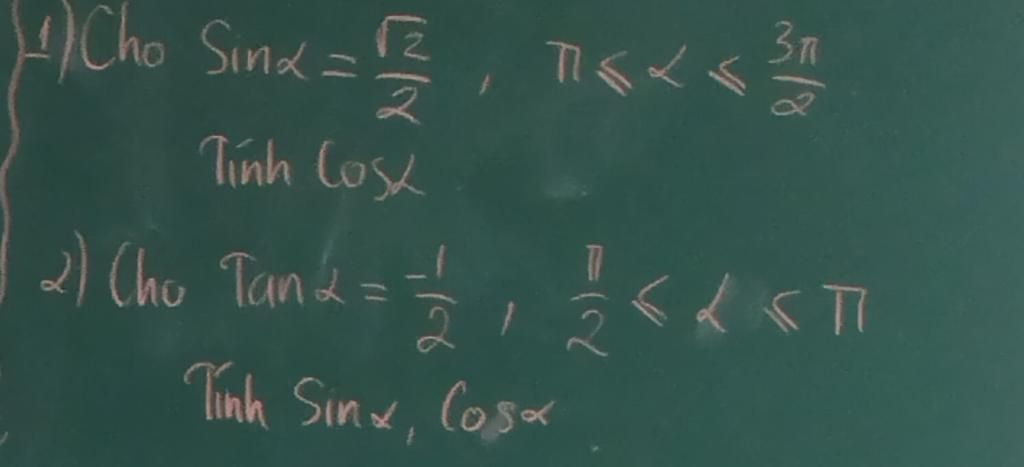 1) Cho Sinα = √2/2 , π ≤ α ≤ 3π/2
Tính Cosα
2) Cho Tanα = -1/2 , π/2 ≤ α ≤ π
Tính Sinα, Cosα